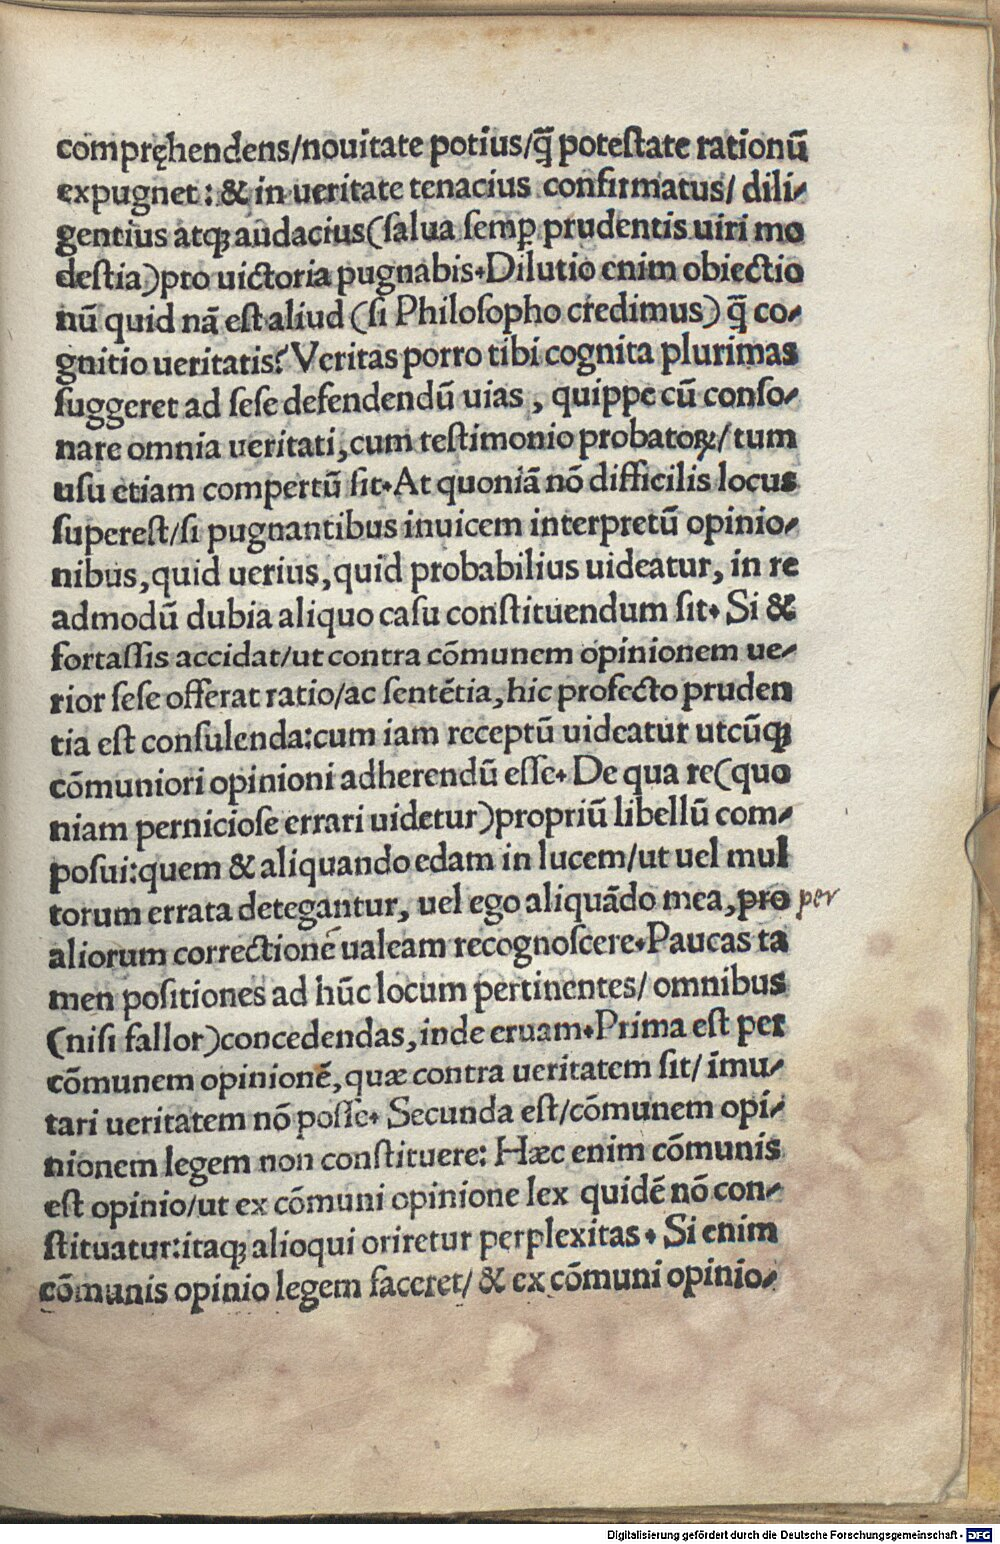 compręhendens/nouitate potius/q̃ poteſtate rationũ
expugnet: & in ueritate tenacius confirmatus/ dili-
gentius atqꝫ audacius(ſalua ſemꝑ prudentis uiri mo
deſtia)pro uictoria pugnabis.Dilutio enim obiectio
nũ quid nã eſt aliud (ſi Philoſopho credimus) q̃ co-
gnitio ueritatis? Veritas porro tibi cognita plurimas
ſuggeret ad ſeſe defendendũ uias , quippe cũ conſo-
nare omnia ueritati,cum teſtimonio probatoꝝ/ tum
uſu etiam compertũ ſit.At quoniã nõ difficilis locus
ſupereſt/ſi pugnantibus inuicem interpretũ opinio-
nibus,quid uerius,quid probabilius uideatur, in re
admodũ dubia aliquo caſu conſtituendum ſit. Si &
fortaſſis accidat/ut contra cõmunem opinionem ue-
rior ſeſe offerat ratio/ac ſentẽtia,hic profecto pruden
tia eſt conſulenda:cum iam receptũ uideatur utcũqꝫ
cõmuniori opinioni adherendũ eſſe. De qua re(quo
niam pernicioſe errari uidetur)propriũ libellũ com-
poſui:quem & aliquando edam in lucem/ut uel mul
torum errata detegantur, uel ego aliquãdo mea,pro per
aliorum correctionẽ ualeam recognoſcere.Paucas ta
men poſitiones ad hũc locum pertinentes/ omnibus
(niſi fallor)concedendas,inde eruam.Prima eſt per
cõmunem opinionẽ,quæ contra ueritatem ſit/ ĩmu-
tari ueritatem nõ poſſe. Secunda eſt/cõmunem opi-
nionem legem non conſtituere: Hæc enim cõmunis
eſt opinio/ut ex cõmuni opinione lex quidẽ nõ con-
ſtituatur:itaqꝫ alioqui oriretur perplexitas. Si enim
cõmunis opinio legem faceret/ & ex cõmuni opinio-
Digitalisierung gefördert durch die Deutsche Forschungsgemeinschaft - DFG